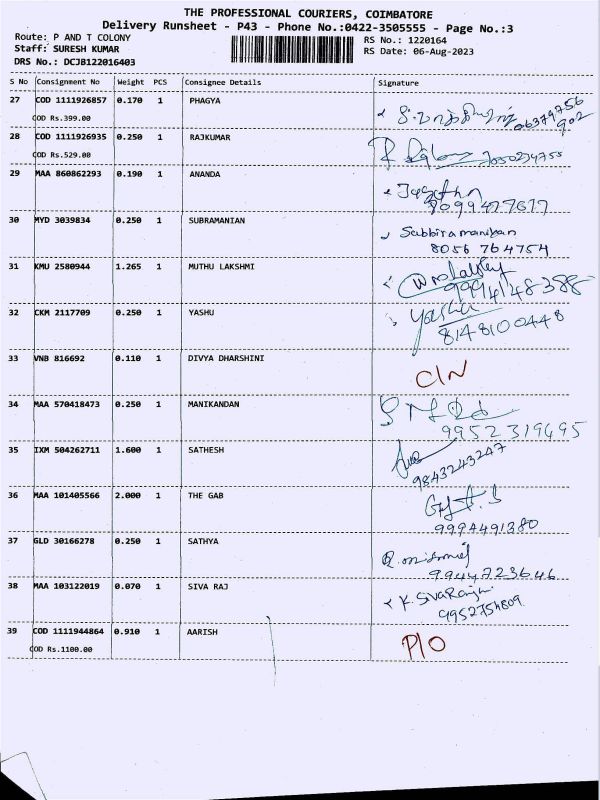 THE PROFESSIONAL COURIERS, COIMBATORE
Delivery Runsheet - P43 - Phone No.:0422-3505555 - Page No.:3
Route: P AND T COLONY
RS No.: 1220164
Staff: SURESH KUMAR
RS Date: 06-Aug-2023
DRS No.: DCJB122016403
S No Consignment No Weight PCS Consignee Details Signature
27 COD 1111926857 0.170 1 PHAGYA
COD Rs.399.00
28 COD 1111926935 0.250 1 RAJKUMAR
COD Rs.529.00
29 MAA 860862293 0.190 1 ANANDA
30 MYD 3039834 0.250 1 SUBRAMANIAN Subbiramaniyan
8056 764754
31 KMU 2580944 1.265 1 MUTHU LAKSHMI
9994148388
32 CKM 2117709 0.250 1 YASHU Yashu
8148100448
33 VNB 816692 0.110 1 DIVYA DHARSHINI
C/N
34 MAA 570418473 0.250 1 MANIKANDAN
9952319495
35 IXM 504262711 1.600 1 SATHESH
9843243247
36 MAA 101405566 2.000 1 THE GAB
9994491380
37 GLD 30166278 0.250 1 SATHYA
9944723646
38 MAA 103122019 0.070 1 SIVA RAJ K. SivaRaj
9952754809
39 COD 1111944864 0.910 1 AARISH P/O
COD Rs.1100.00